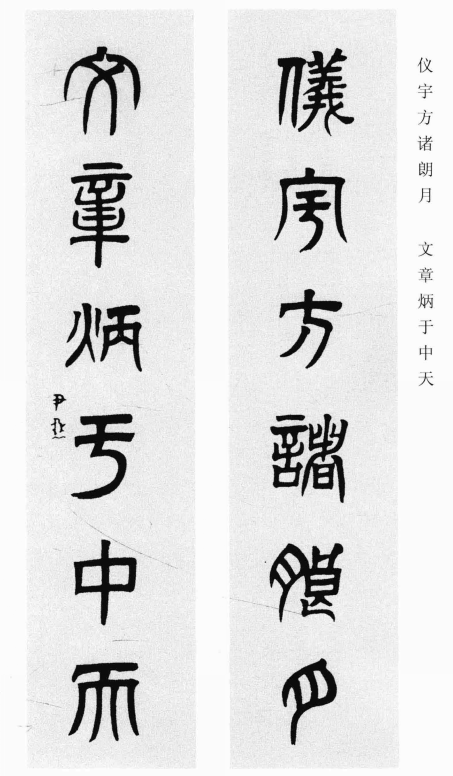 仪宇方诸朗月 文章炳于中天
儀宇方諸朖月
文章炳于中天